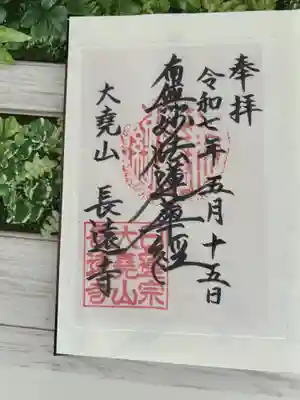 奉拝
令和七年五月十五日
南無妙法蓮華經
大堯山 長遠寺
日蓮宗
大堯山
長遠寺